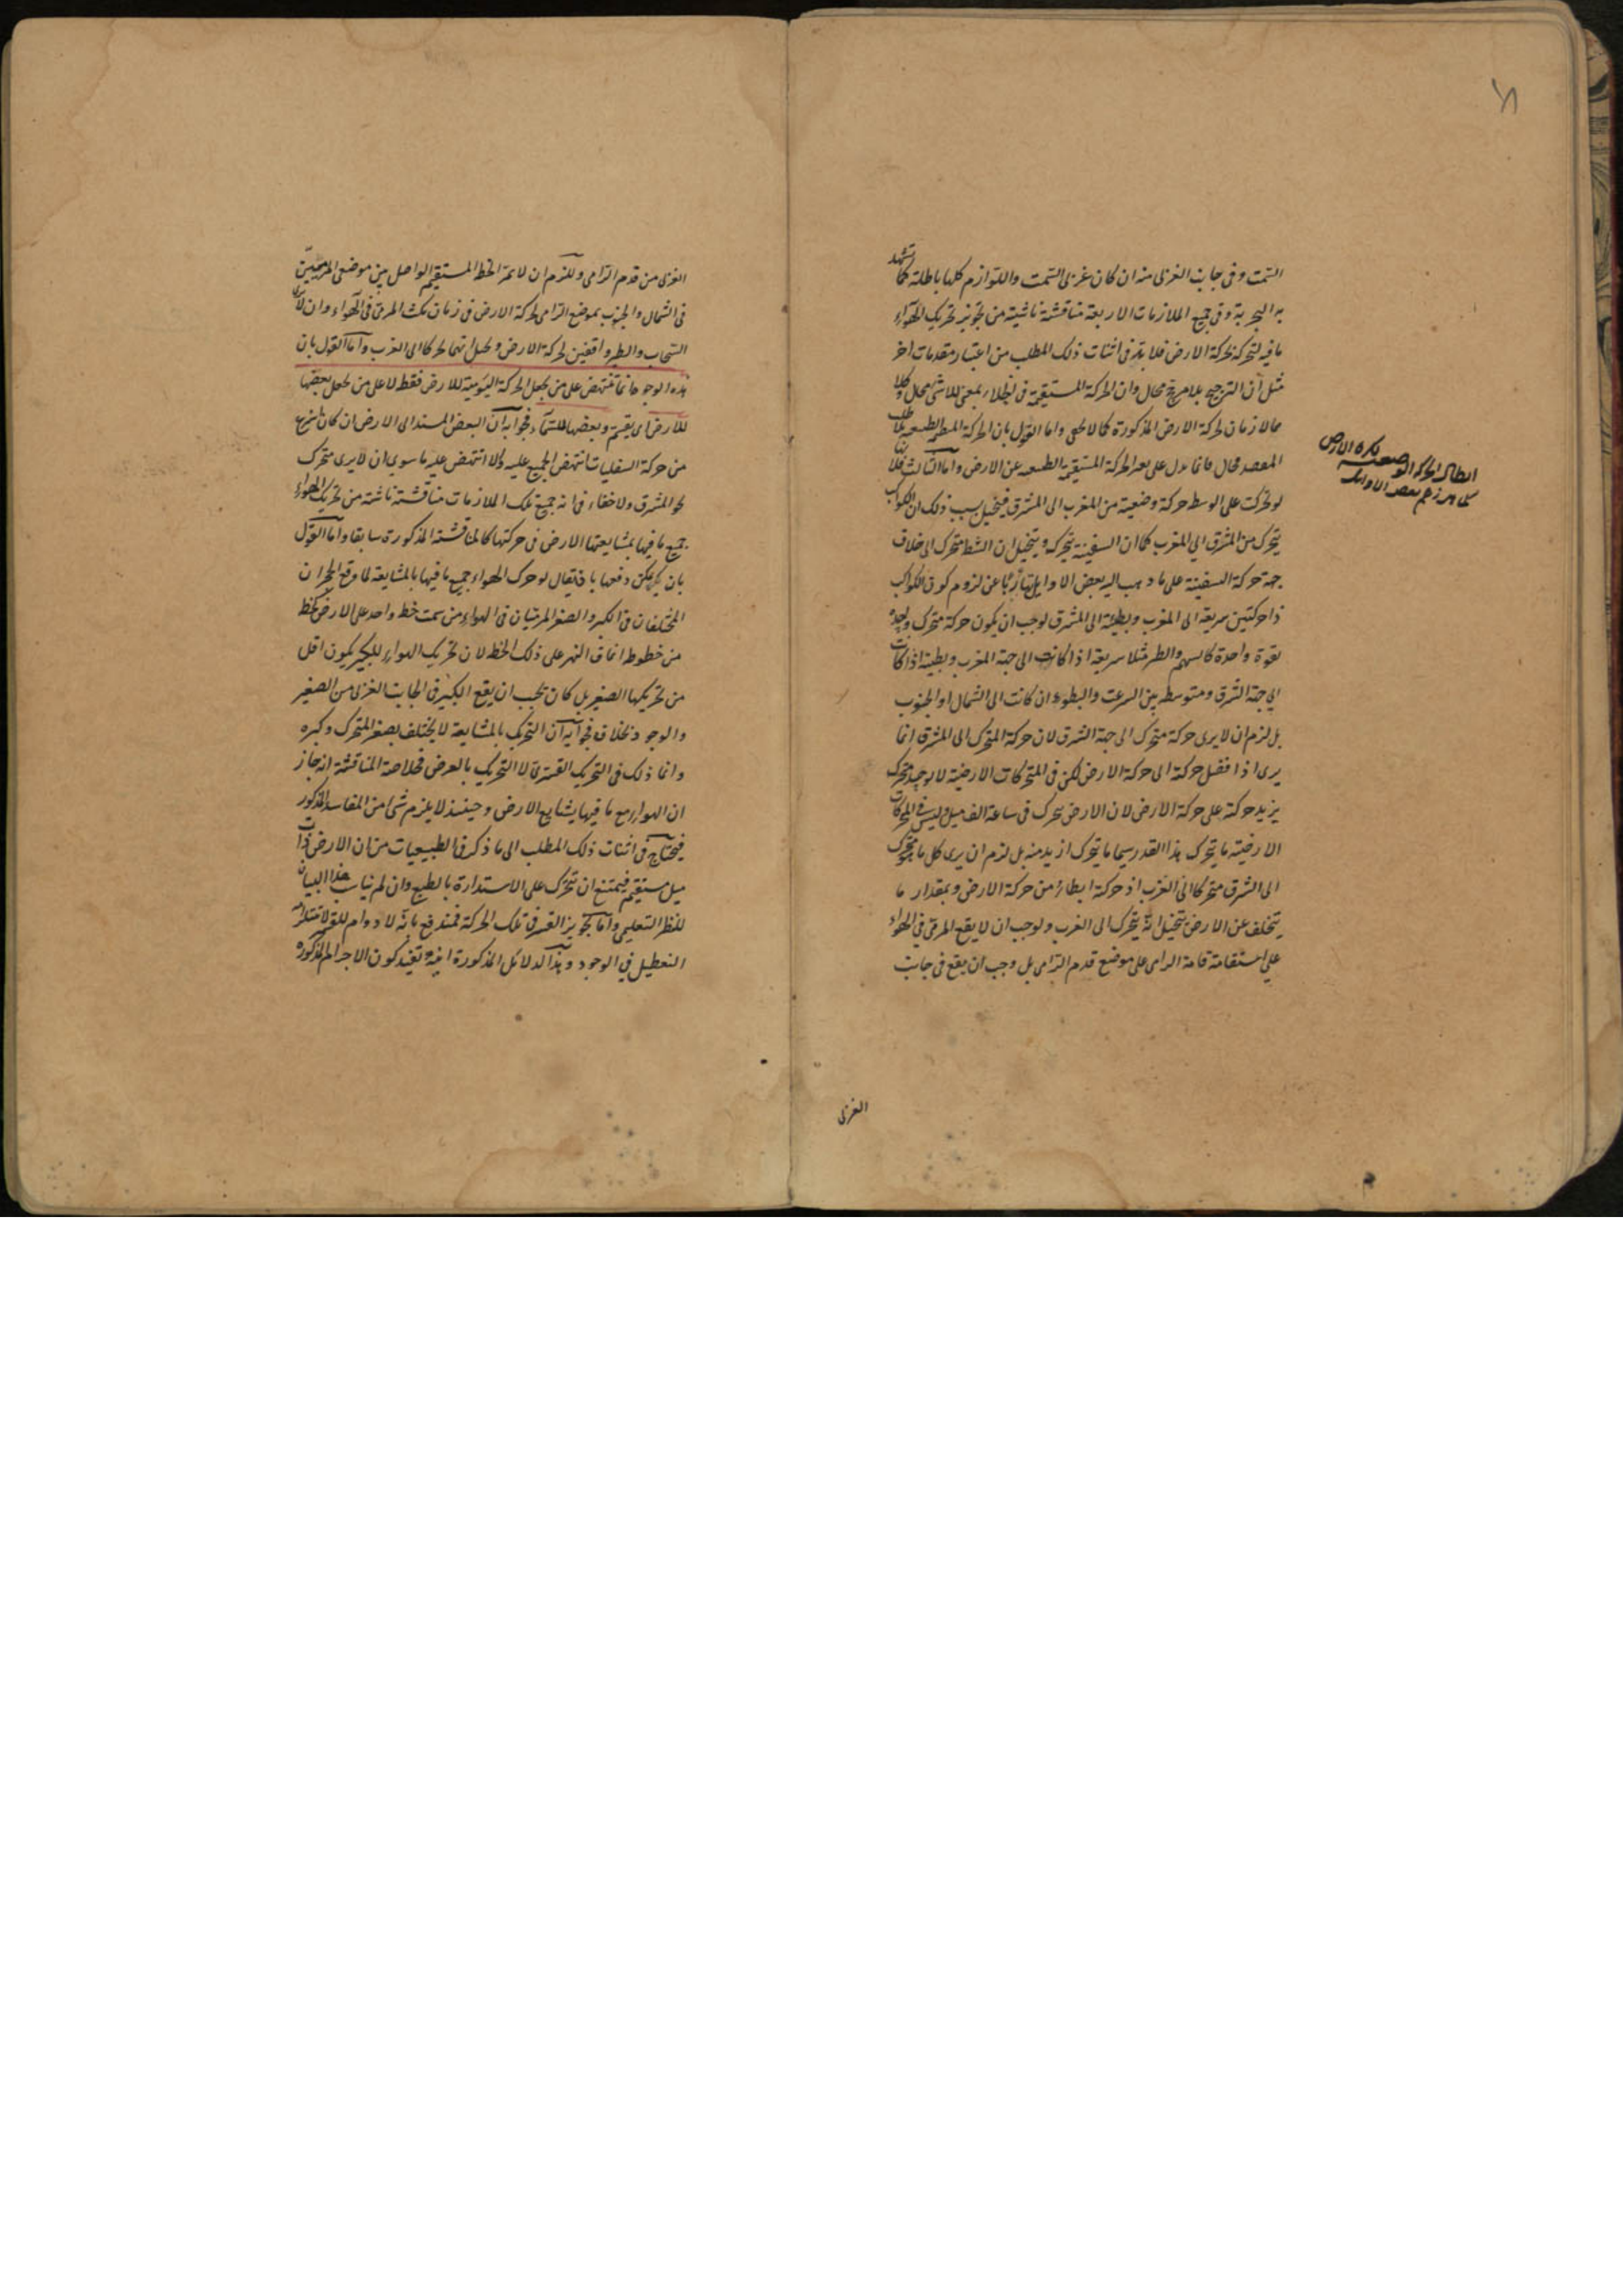 السمت وفى جانب الغربى منه ان كان غربى السمت واللوازم كلها باطلة كما تشهد
به التجربة وفى جميع الملازمات الاربعة مناقشة ناشية من تجويز تحريك الهواء
ما فيه لتحركه بحركة الارض فلا بد فى اثبات ذلك المطلب من اعتبار مقدمات اخر
مثل ان الترجيح بلا مرجح محال وان الحركة المستقيمة فى الخلاء بمعنى اللاشى محال وكلا
محالا زمان لحركة الارض المذكورة كما لا يخفى واما القول بان الحركة
محال فانما يدل على الحركة المستقيمة الطبيعية عن الارض واما الثالث فلانها
لو تحركت على الوسط حركة وضعية من المغرب الى المشرق فيتخيل بسبب ذلك ان الكواكب
يتحرك من المشرق الى المغرب كما ان السفينة يتحرك ويتخيل ان الشط متحرك الى خلاف
جهة حركة السفينة على ما ذهب اليه بعض الاوايل عن لزوم كون الكواكب
ذا حركتين سريعة الى المغرب وبطيئة الى المشرق لوجب ان يكون حركة متحرك واحد
بقوة واحدة كالسهم والطير مثلا سريعة اذا كانت الى جهة المغرب وبطيئة اذا كانت
الى جهة الشرق ومتوسطة بين السرعة والبطوء ان كانت الى الشمال او الجنوب
بل لزم ان لا يرى حركة متحرك الى جهة الشرق لان حركة المتحرك الى المشرق انما
يرى اذا فضل حركته الى حركة الارض لكن فى المتحركات الارضية لا يوجد متحرك
يزيد حركته على حركة الارض لان الارض يتحرك فى ساعة الف ميل وليس فى المتحركات
الارضية ما يتحرك هذا القدر سيما ما يتحرك ازيد منه بل لزم ان يرى كل ما يتحرك
الى الشرق متحركا الى الغرب اذ حركته ابطاء من حركة الارض وبمقدار ما
يتخلف عن الارض يتخيل انه يتحرك الى الغرب ولوجب ان لا يقع المرمى فى الهواء
على استقامة قامة الرامى على موضع قدم الرامى بل وجب ان يقع فى جانب
ابطال الحركة الوضعية لكرة الارض
كما هو زعم بعض الاوايل
الغربى
الغربى من قدم الرامى وللزم ان لا يمر الخط المستقيم الواصل بين موضعى المرميين
فى الشمال والجنوب بموضع الرامى لحركة الارض فى زمان مكث المرمى فى الهواء وان لا يرى
السحاب والطير واقفين لحركة الارض ويخيل انهما تحركا الى الغرب واما القول بان
هذه الوجوه انما تنتهض على من يجعل الحركة اليومية للارض فقط لا على من يجعل بعضها
للارض وبعضها للسماء فجوابه ان البعض المسند الى الارض ان كان اسرع
من حركة السفليات انتهض الجميع عليه والا انتهض عليه ما سوى ان لا يرى متحرك
نحو المشرق ولا خفاء فى انه جميع تلك الملازمات مناقشة ناشئة من تحريك الهواء
جميع ما فيها بمشايعتها الارض فى حركتها كالمناقشة المذكورة سابقا واما القول
بان يمكن دفعها بان يقال لو حرك الهواء جميع ما فيها بالمشايعة لما وقع الحجران
المختلفان فى الكبر والصغر المرميان فى الهواء من سمت خط واحد على الارض كخط
من خطوط انصاف النهر على ذلك الخط لان تحريك الهواء للكبير يكون اقل
من تحريكها الصغير بل كان يجب ان يقع الكبير فى الجانب الغربى من الصغير
والوجود بخلافه فجوابه ان التحريك بالمشايعة لا يختلف بصغر المتحرك وكبره
وانما ذلك فى التحريك القسرى لا التحريك بالعرض فخلاصة المناقشة انه جاز
ان الهواء مع ما فيها يشايع الارض وحينئذ لا يلزم شئ من المفاسد المذكورة
فيحتاج فى اثبات ذلك المطلب الى ما ذكر فى الطبيعيات من ان الارض ذات
ميل مستقيم فيمتنع ان تتحرك على الاستدارة بالطبع وان لم يناسب هذا البيان
للنظر التعليمى واما تجويز القسر فى تلك الحركة فمندفع بانه لا دوام للقسر
التعطيل فى الوجود وهذا الدلائل المذكورة تفيد كون الاجرام المذكورة